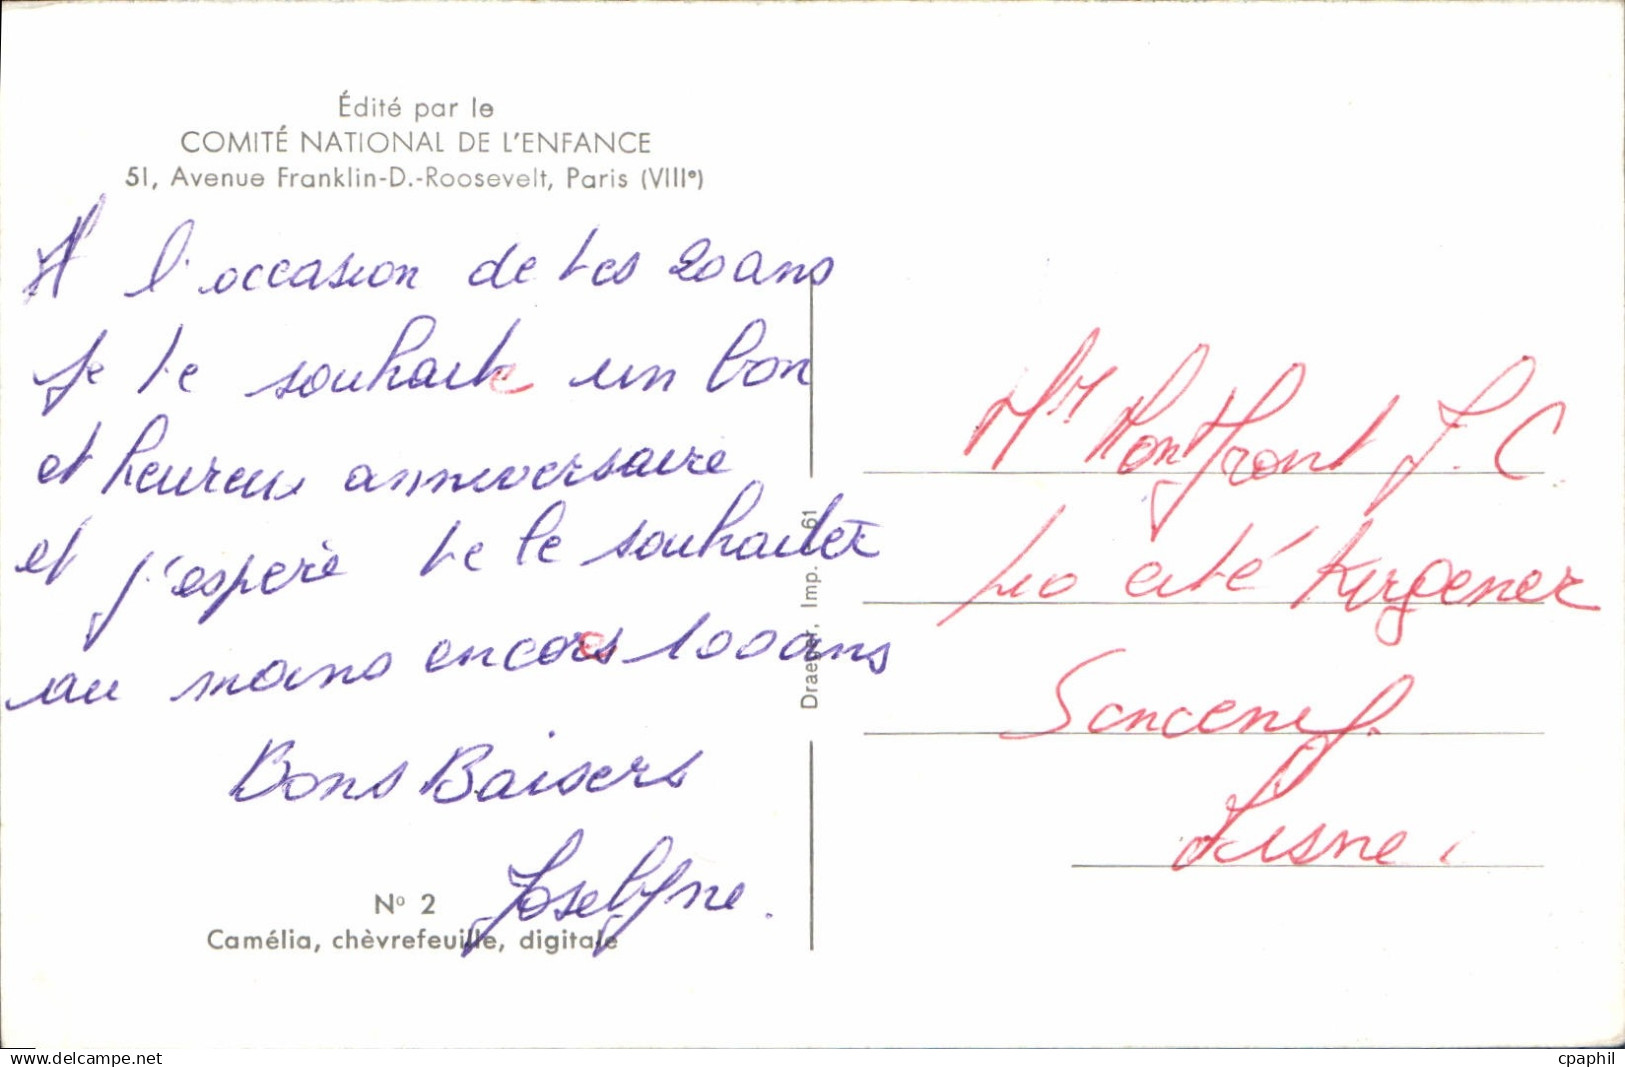 Édité par le
COMITÉ NATIONAL DE L'ENFANCE
51, Avenue Franklin-D.-Roosevelt, Paris (VIIIe)
A l'occasion de tes 20 ans
je te souhaite un bon
et heureux anniversaire
et j'espère te le souhaiter
au moins encore 100 ans
Bons Baisers
Joselyne.
No 2
Camélia, chèvrefeuille, digitale
Draeger, Imp. 61
Mr Montfront J.C
cité Kergener
Aisne.
www.delcampe.net
cpaphil